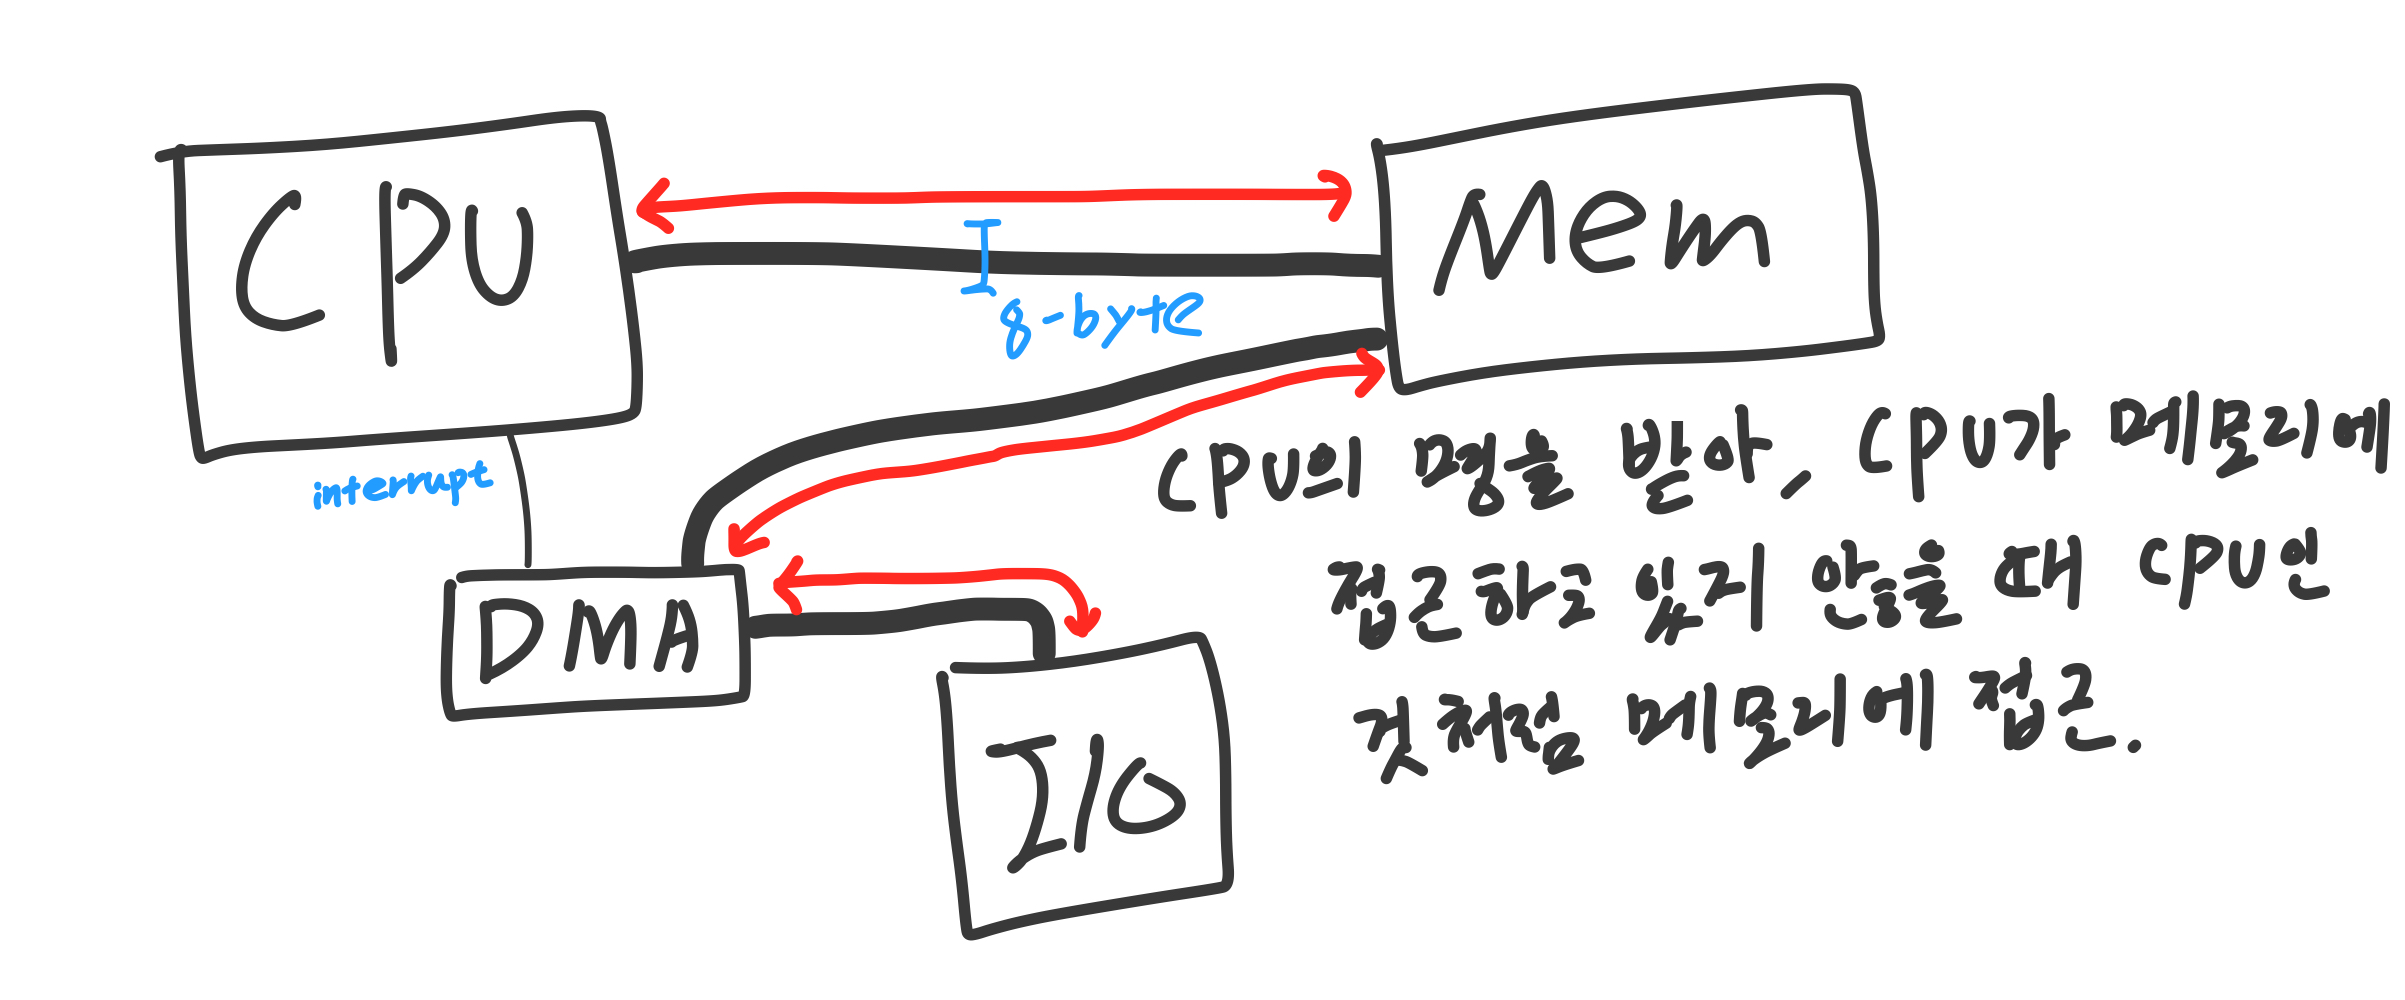 CPU
Mem
8-byte
interrupt
DMA
I/O
CPU의 명을 받아, CPU가 메모리에
접근하고 있지 않을 때 CPU인
것처럼 메모리에 접근.